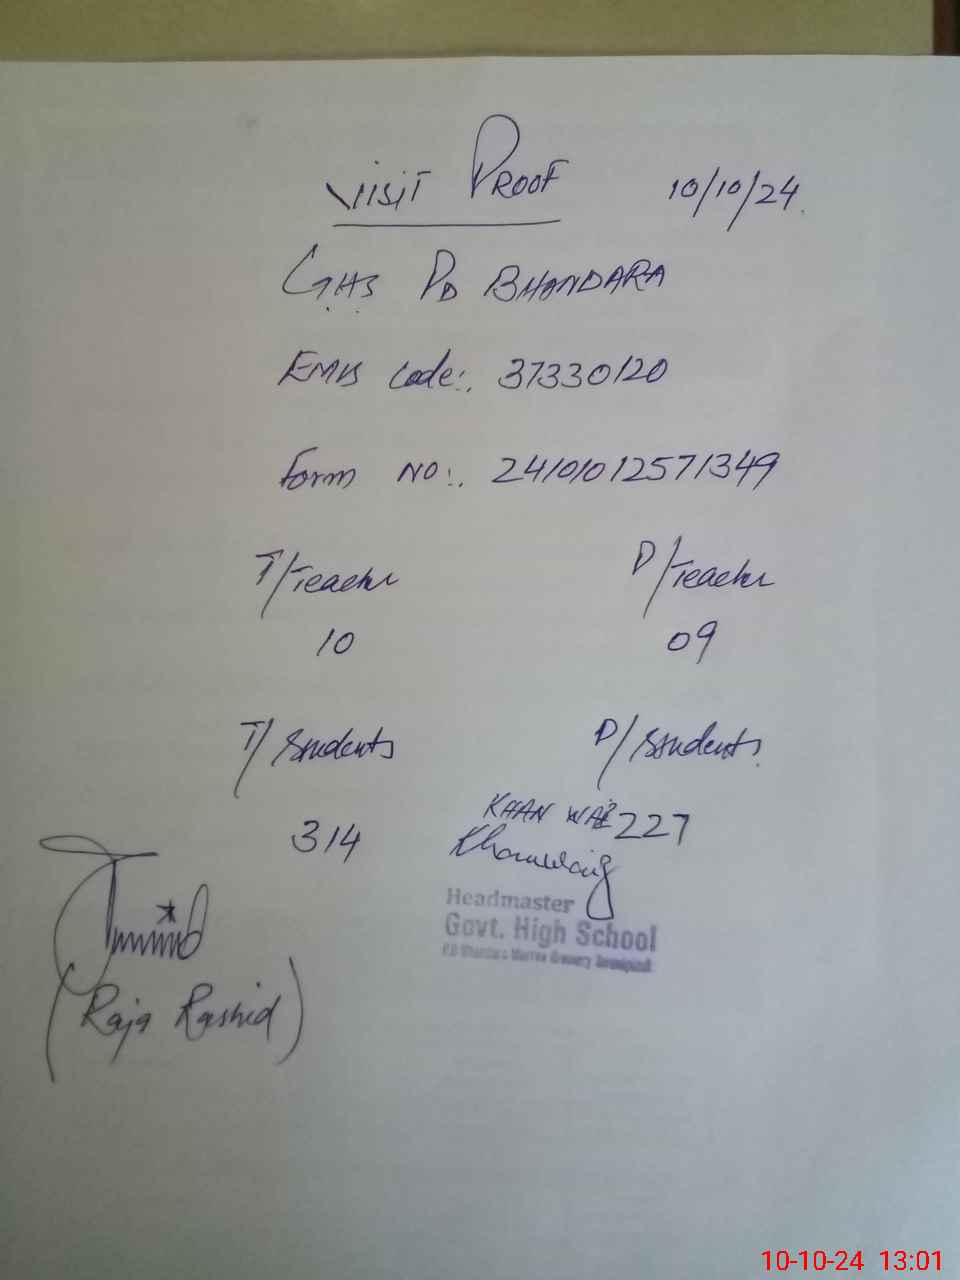 VISIT PROOF 10/10/24.
GHS PD BHANDARA
EMIS Code:. 37330120
Form NO:. 24101012571349
T/Teacher P/Teacher
10 09
T/Students P/Students.
314 KHAN 227
Headmaster
Govt. High School
(Raja Rashid)
10-10-24 13:01